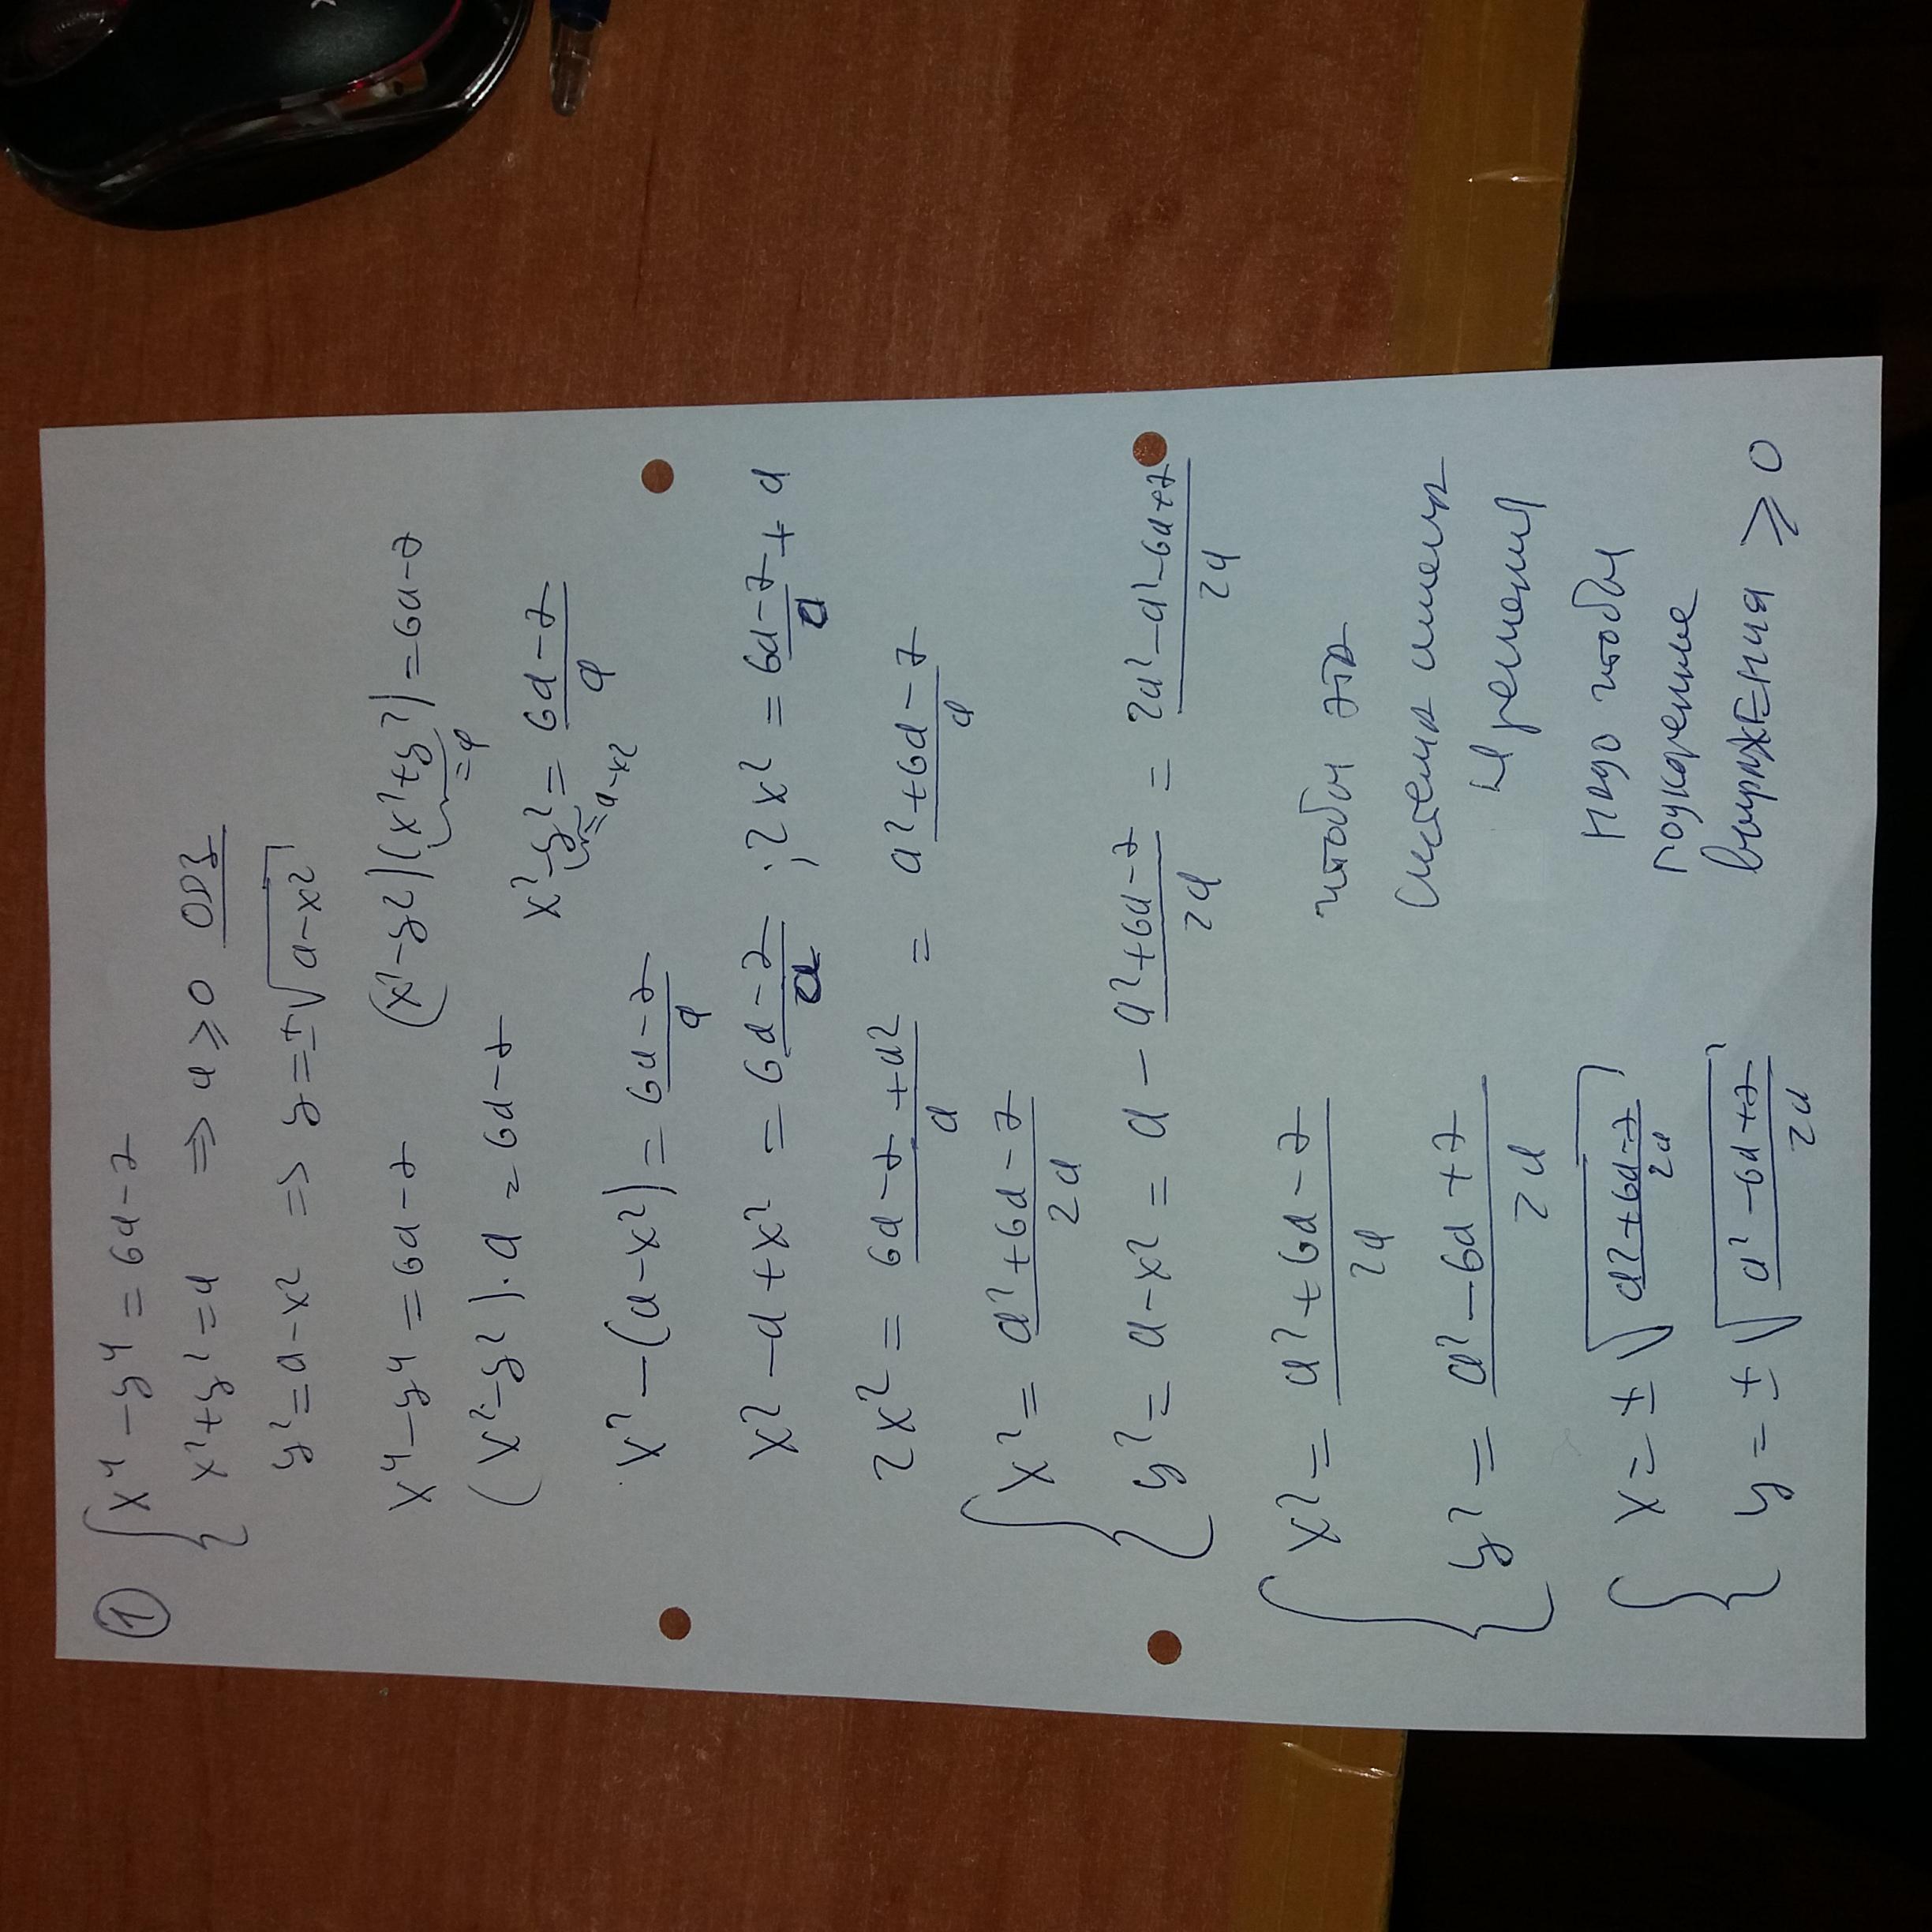 ①
{ x⁴ − y⁴ = 6a − 7
x² + y² = a ⇒ a ⩾ 0 ОДЗ
y² = a − x² ⇒ y = ±√(a − x²)
x⁴ − y⁴ = 6a − 7 (x² − y²)(x² + y²) = 6a − 7
= a
(x² − y²) · a = 6a − 7 x² − y² = (6a − 7)/a
= a − x²
x² − (a − x²) = (6a − 7)/a
x² − a + x² = (6a − 7)/a ; 2x² = (6a − 7)/a + a
2x² = (6a − 7 + a²)/a = (a² + 6a − 7)/a
{ x² = (a² + 6a − 7)/2a
y² = a − x² = a − (a² + 6a − 7)/2a = (2a² − a² − 6a + 7)/2a
{ x² = (a² + 6a − 7)/2a
y² = (a² − 6a + 7)/2a
{ x = ±√((a² + 6a − 7)/2a)
y = ±√((a² − 6a + 7)/2a)
чтобы эта
система имела
4 решения
надо чтобы
подкоренные
выражения ⩾ 0